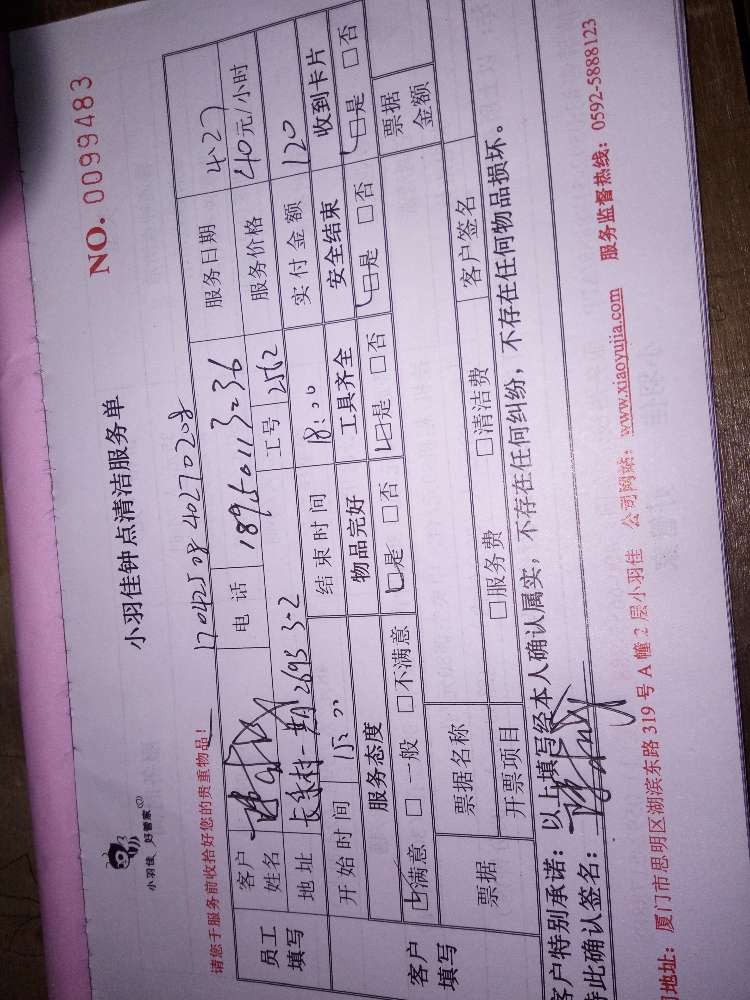 小羽佳 好管家
小羽佳钟点清洁服务单
NO. 0099483
请您于服务前收拾好您的贵重物品！
1704250840270208
员工填写
客户姓名
电话 18950113236
服务日期 4.27
地址 长乐村一期 2695 3-2
工号 2512
服务价格 40元/小时
开始时间 15:00
结束时间 18:00
实付金额 120
客户填写
服务态度 物品完好 工具齐全 安全结束 收到卡片
☑满意 □一般 □不满意 ☑是 □否 ☑是 □否 ☑是 □否 ☑是 □否
票据 票据名称 票据金额
开票项目 □服务费 □清洁费 客户签名
客户特别承诺：以上填写经本人确认属实，不存在任何纠纷，不存在任何物品损坏。
特此确认签名：
地址：厦门市思明区湖滨东路 319 号 A 幢 2 层小羽佳 公司网站：www.xiaoyujia.com 服务监督热线：0592-5888123